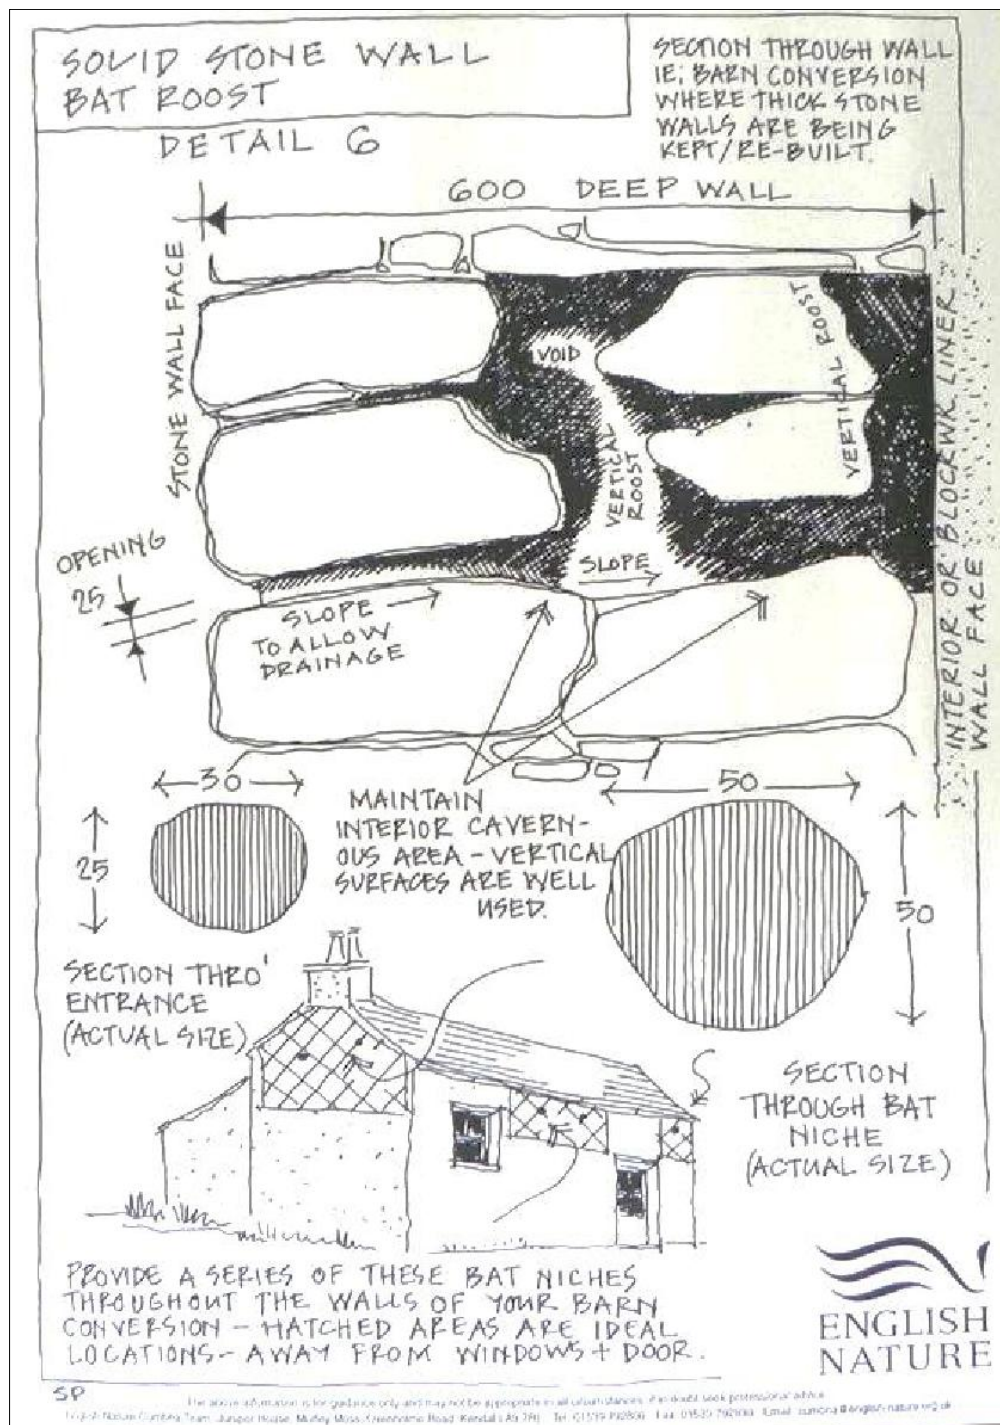 SOLID STONE WALL
BAT ROOST
DETAIL 6
SECTION THROUGH WALL
IE; BARN CONVERSION
WHERE THICK STONE
WALLS ARE BEING
KEPT/RE-BUILT.
600 DEEP WALL
STONE WALL FACE
VOID
VERTICAL
ROOST
VERTICAL ROOST
INTERIOR OR BLOCKWK LINER
WALL FACE
OPENING
25
SLOPE
SLOPE
TO ALLOW
DRAINAGE
30
25
MAINTAIN
INTERIOR CAVERN-
OUS AREA - VERTICAL
SURFACES ARE WELL
USED.
50
50
SECTION THRO'
ENTRANCE
(ACTUAL SIZE)
SECTION
THROUGH BAT
NICHE
(ACTUAL SIZE)
PROVIDE A SERIES OF THESE BAT NICHES
THROUGHOUT THE WALLS OF YOUR BARN
CONVERSION - HATCHED AREAS ARE IDEAL
LOCATIONS - AWAY FROM WINDOWS + DOOR.
ENGLISH
NATURE
SP
The above information is for guidance only and may not be appropriate in all circumstances. If in doubt seek professional advice
English Nature Cumbria Team, Juniper House, Murley Moss, Oxenholme Road, Kendal LA9 7RL Tel: 01539 792800 Fax: Email: